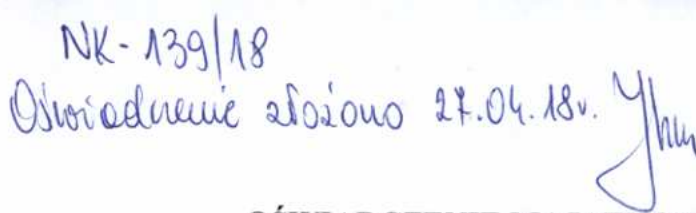 NK-139/18
Oświadczenie złożono 27.04.18r.